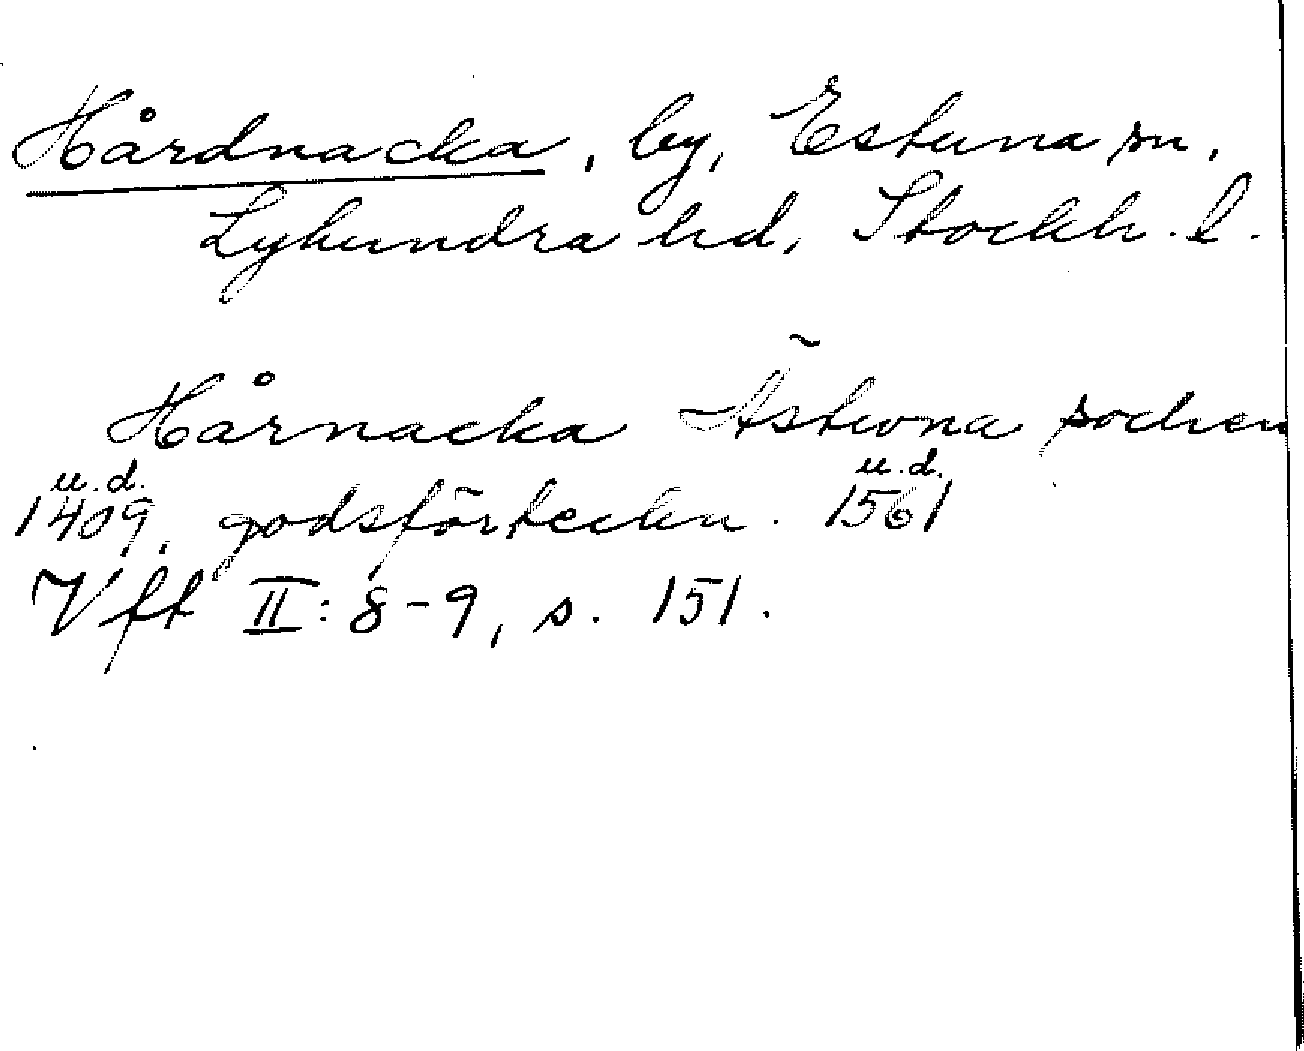 Hårdnacka, by, Estuna sn,
Lyhundra hd, Stockh. l.
Hårnacka Ästwna sochen
u.d. u.d.
1409, godsförteckn. 1561
Vft II: 8-9, s. 151.